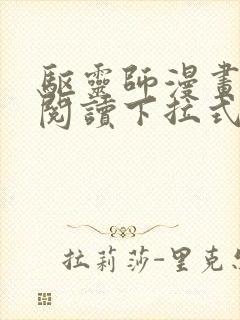 驅靈師漫畫
閱讀下拉式
拉莉莎-里克